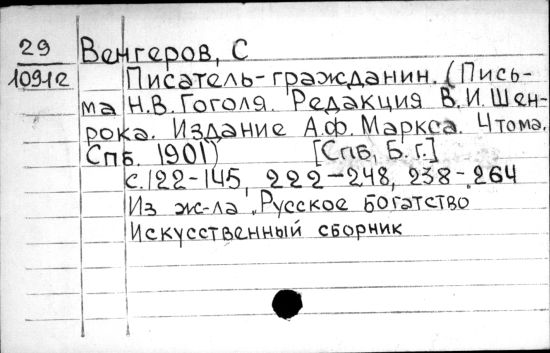 29
10912
Венгеров, С
Писатель-гражданин. (Пись-
ма Н.В. Гоголя. Редакция В.И. Шен-
рока. Издание А.Ф. Маркса. 4 тома.
Спб. 1901) [Спб, Б. г.]
с. 122-145, 222-248, 238-264
Из ж-ла "Русское богатство"
Искусственный сборник